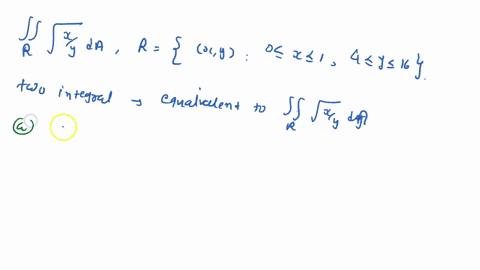 ∬_R √(x/y) dA , R = { (x,y) : 0 ≤ x ≤ 1 , 4 ≤ y ≤ 16 }.
two integral → equalivalent to ∬_R √(x/y) dA
(a)